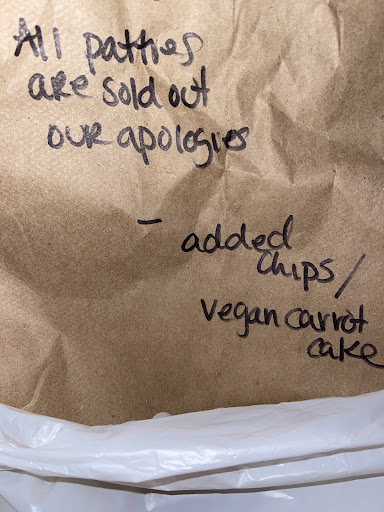 All patties
are sold out
our apologies
- added
chips/
vegan carrot
cake